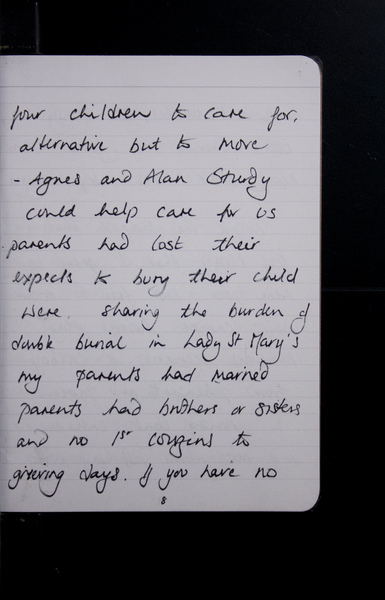 four children to care for,
alternative but to move
- Agnes and Alan Sturdy
could help care for us
parents had lost their
expects to bury their child
were. sharing the burden of
double burial in Lady St Mary's
my parents had married
parents had brothers or sisters
and no 1st cousins to
grieving days. If you have no
8